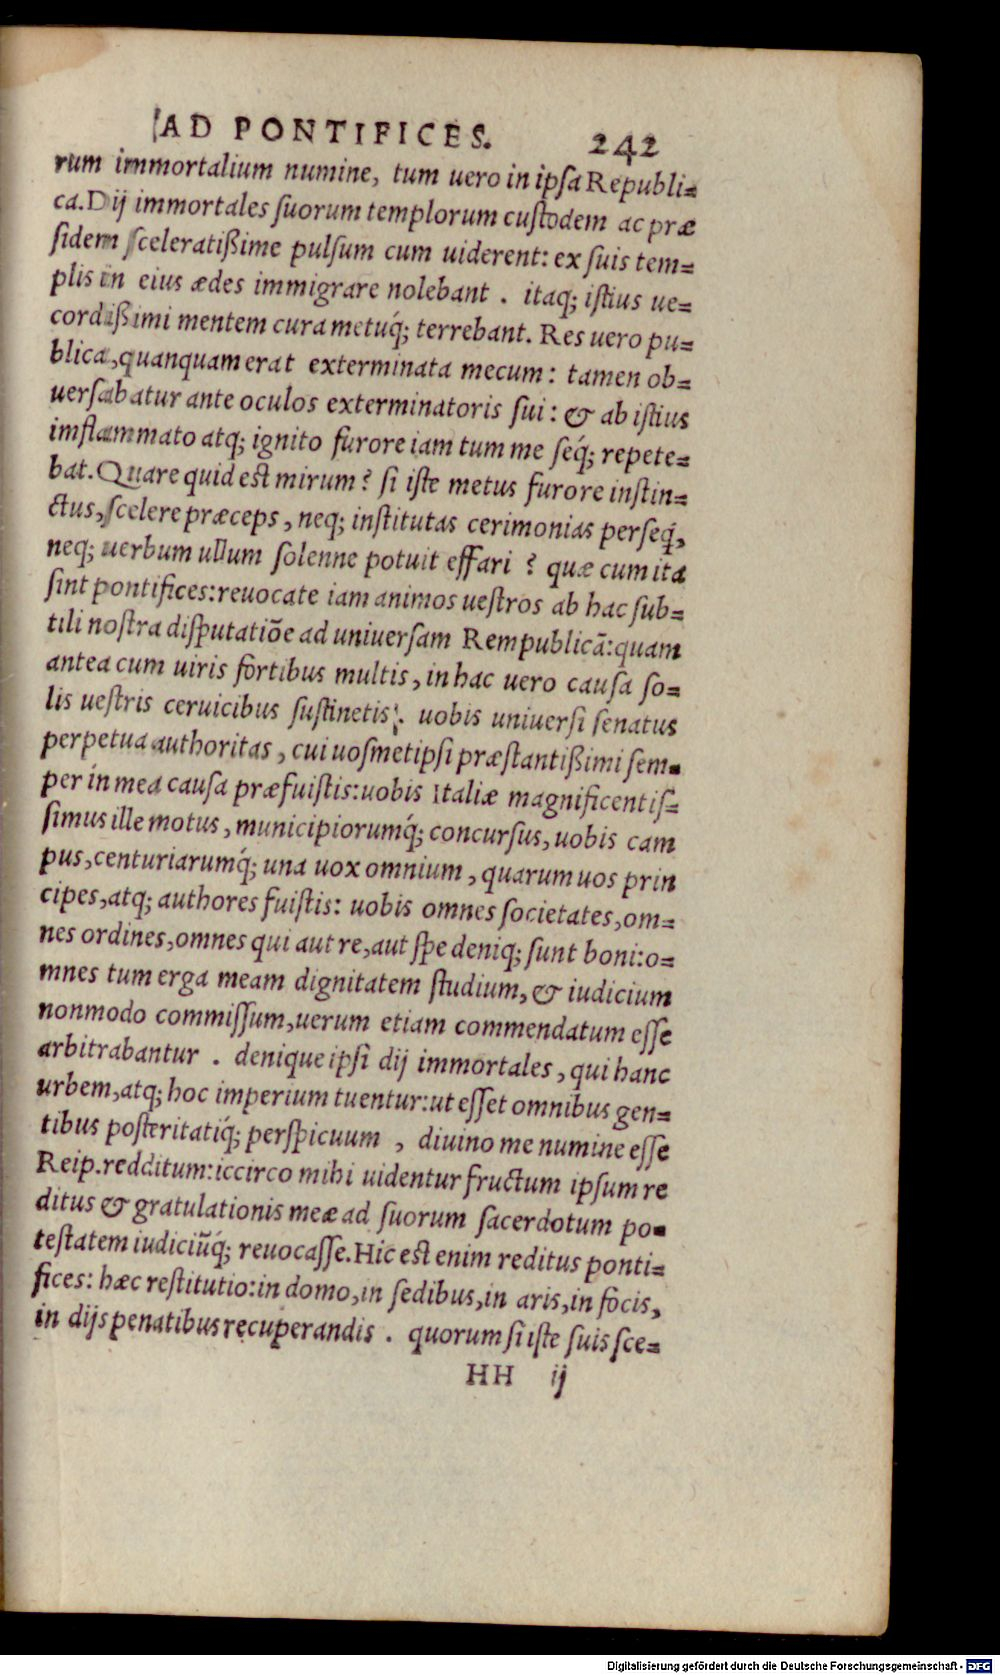 AD PONTIFICES. 242
rum immortalium numine, tum uero in ipſa Republi=
ca. Dij immortales ſuorum templorum cuſtodem ac præ
ſidem ſceleratißime pulſum cum uiderent: ex ſuis tem=
plis in eius ædes immigrare nolebant . itaq; iſtius ue=
cordißimi mentem cura metuq́; terrebant. Res uero pu=
blica, quanquam erat exterminata mecum: tamen ob=
uerſabatur ante oculos exterminatoris ſui: & ab iſtius
imflammato atq; ignito furore iam tum me ſéq; repete=
bat. Quare quid est mirum? ſi iſte metus furore inſtin=
ctus, ſcelere præceps, neq; inſtitutas cerimonias perſeq́,
neq; uerbum ullum ſolenne potuit effari ? quæ cum ita
ſint pontifices: reuocate iam animos ueſtros ab hac ſub=
tili noſtra diſputatiõe ad uniuerſam Rempublicã: quam
antea cum uiris fortibus multis, in hac uero cauſa ſo=
lis ueſtris ceruicibus ſuſtinetis. uobis uniuerſi ſenatus
perpetua authoritas, cui uoſmetipſi præſtantißimi ſem=
per in mea cauſa præfuiſtis: uobis Italiæ magnificentiſ=
ſimus ille motus, municipiorumq́; concurſus, uobis cam
pus, centuriarumq́; una uox omnium, quarum uos prin
cipes, atq; authores fuiſtis: uobis omnes ſocietates, om=
nes ordines, omnes qui aut re, aut ſpe deniq; ſunt boni: o=
mnes tum erga meam dignitatem ſtudium, & iudicium
nonmodo commiſſum, uerum etiam commendatum eſſe
arbitrabantur . denique ipſi dij immortales, qui hanc
urbem, atq; hoc imperium tuentur: ut eſſet omnibus gen=
tibus poſteritatiq́; perſpicuum , diuino me numine eſſe
Reip. redditum: iccirco mihi uidentur fructum ipſum re
ditus & gratulationis meæ ad ſuorum ſacerdotum po=
teſtatem iudiciũq́; reuocaſſe. Hic est enim reditus ponti=
fices: hæc reſtitutio: in domo, in ſedibus, in aris, in focis,
in dijs penatibus recuperandis . quorum ſi iſte ſuis ſce=
HH ij
Digitalisierung gefördert durch die Deutsche Forschungsgemeinschaft - DFG